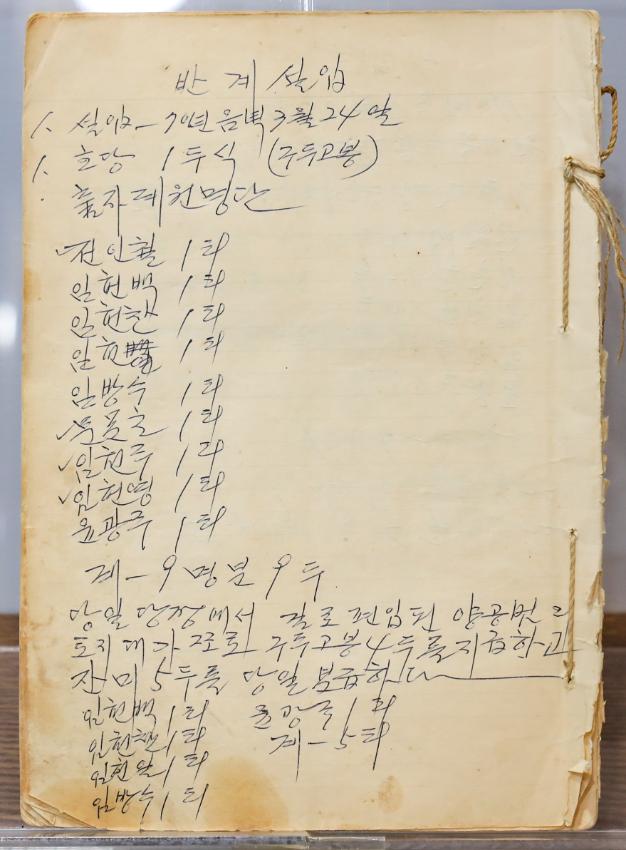 반계설입
1. 설입 - 70년 음력 3월 24일
1. 호당 1두식 (구두고봉)
출자 계원명단
전인철 1화
임헌백 1화
임헌찬 1화
임헌 1화
임방수 1화
1화
임헌주 1화
임헌영 1화
윤광주 1화
계 - 9명분 9두
당일 당장에서 길로 편입된 양공벗의
토지 대가 조로 구두고봉 4두를 지급하고
잔미 5두를 당일 보급하다
임헌백 1화 윤광주 1화
임헌찬 1화 계 - 5화
임헌 1화
임방수 1화